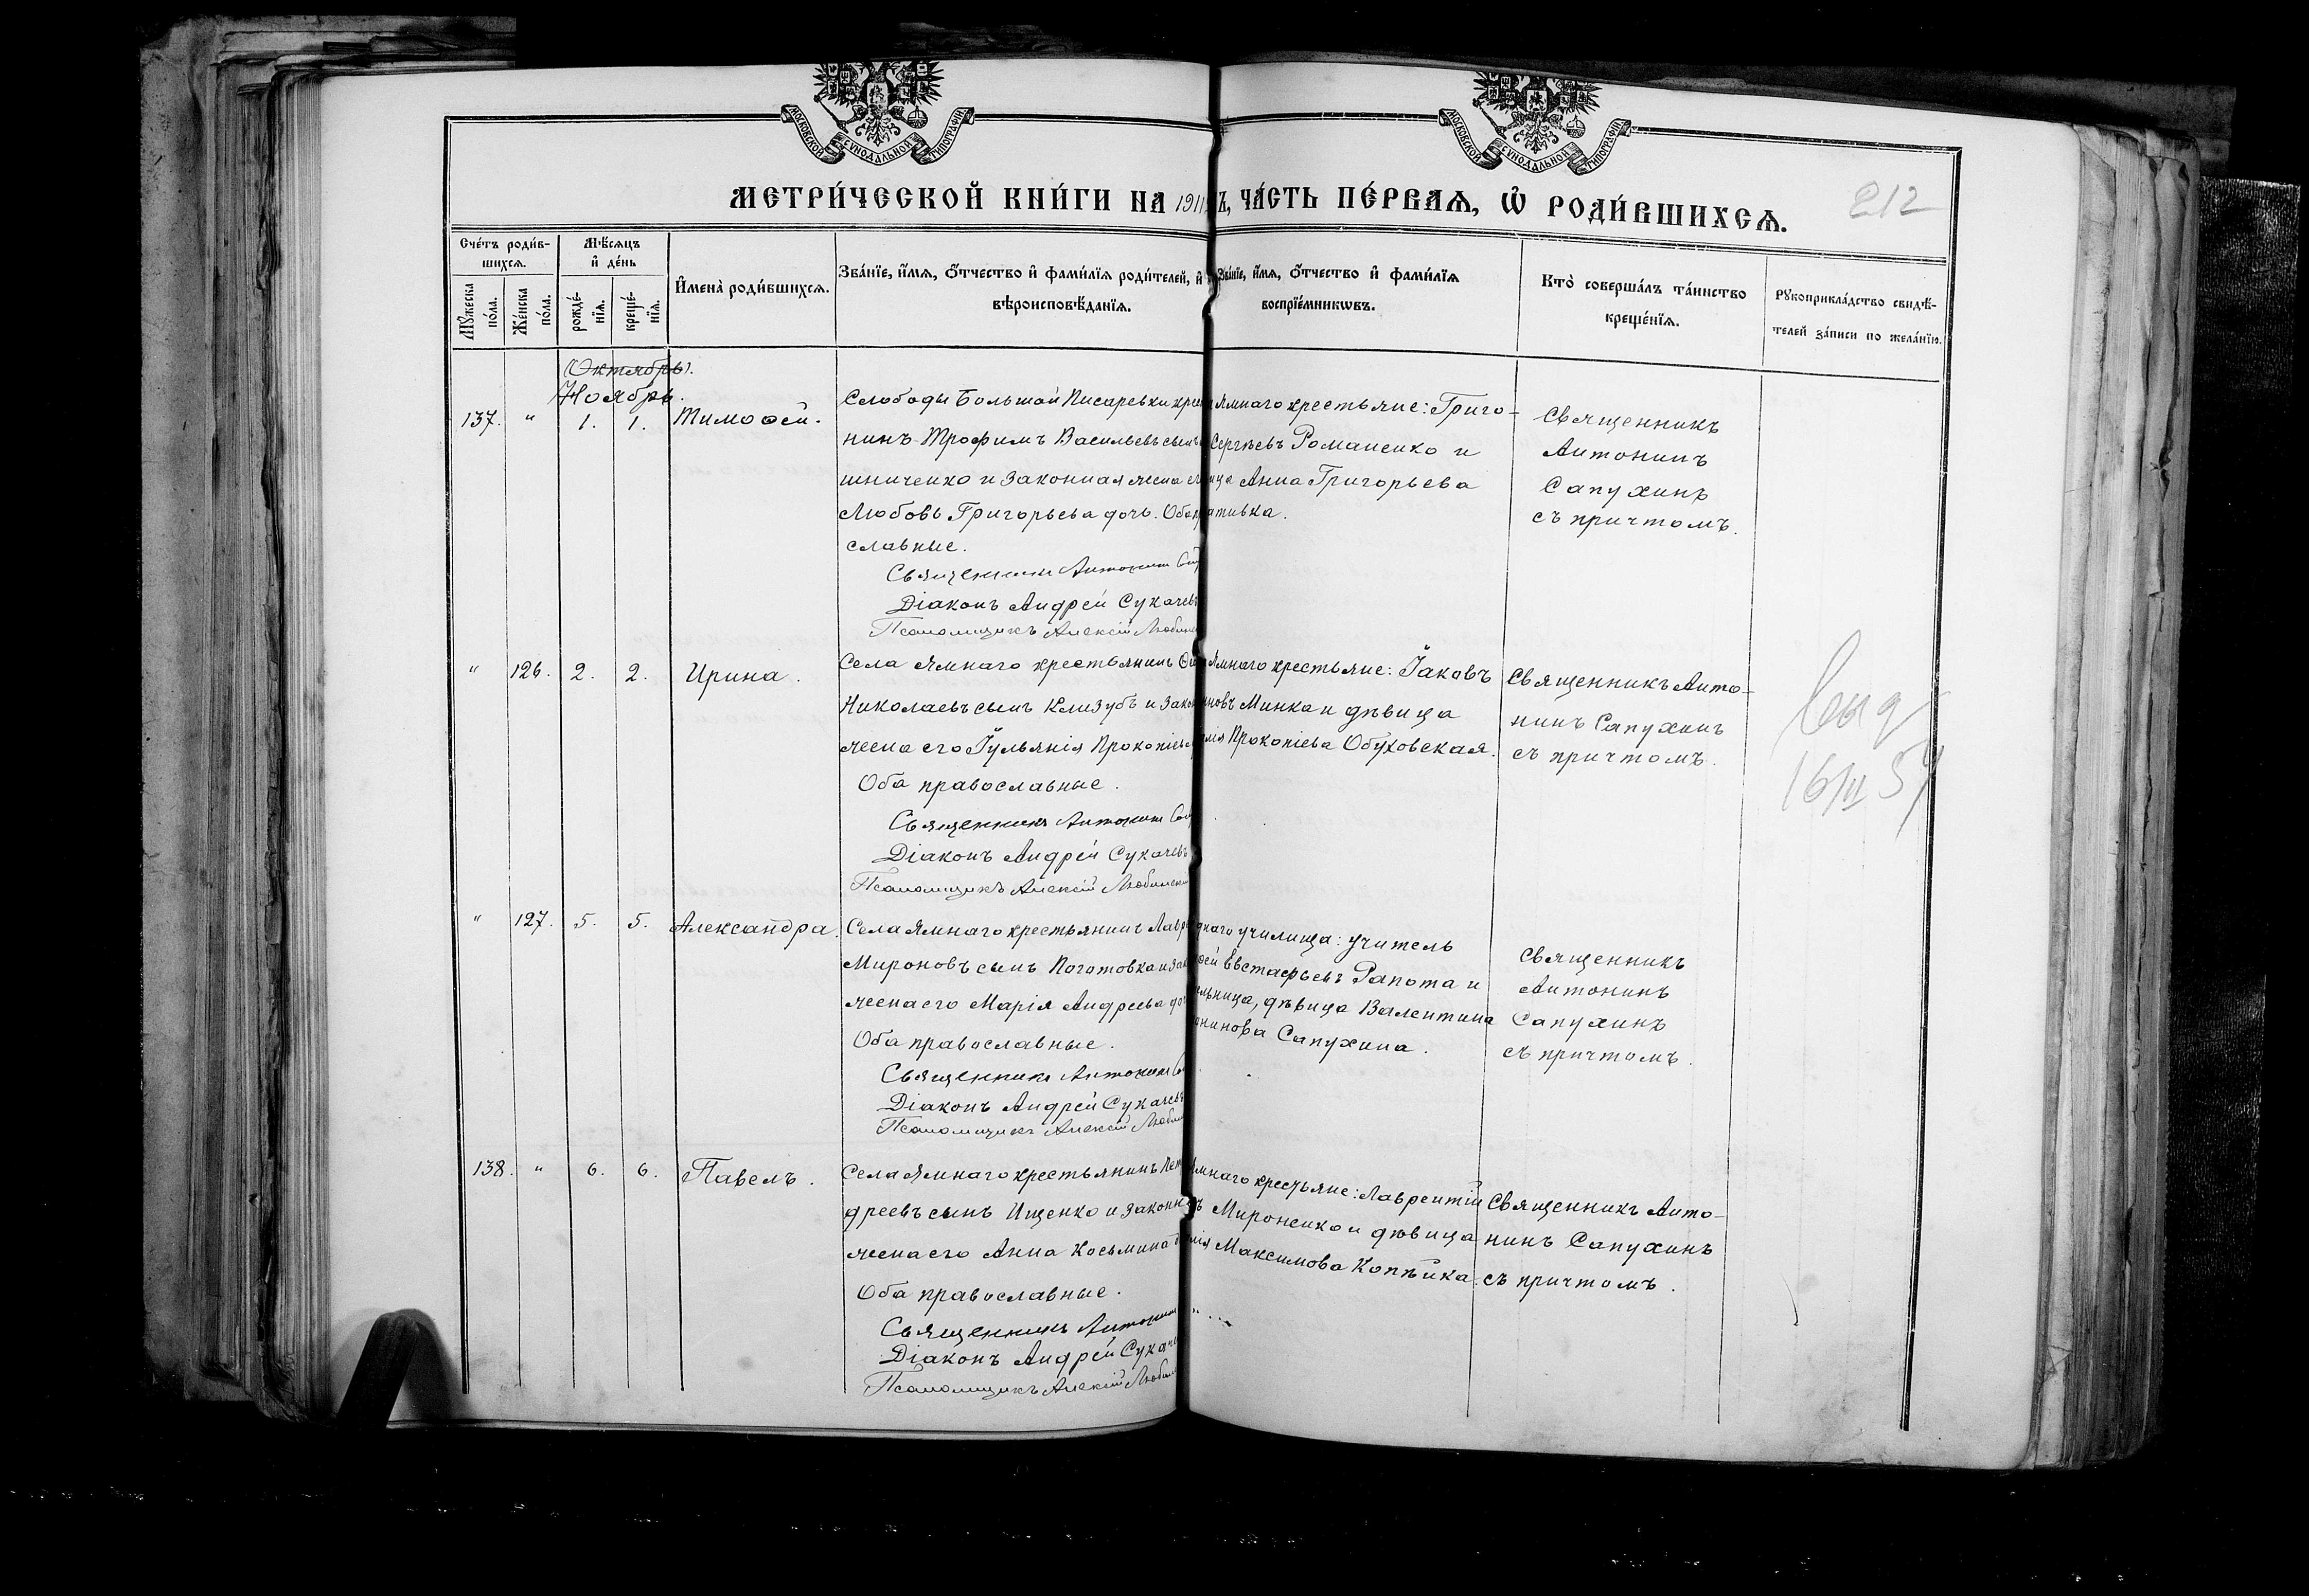 МОСКОВСКОЙ СѴНОДАЛЬНОЙ ТИПОГРАФІИ
МОСКОВСКОЙ СѴНОДАЛЬНОЙ ТИПОГРАФІИ
МЕТРИ́ЧЕСКОЙ КНИ́ГИ НА 1911
Ъ, ЧА́СТЬ ПЕ́РВАѦ, Ѽ РОДИ́ВШИХСѦ.
212
Сче́тъ роди́в-
шихсѧ.
Мꙋ́жеска по́ла.
Же́нска по́ла.
Мѣ́сѧцъ
и҆ де́нь
рожде́-
нїѧ.
креще́-
нїѧ.
И҆мена̀ роди́вшихсѧ.
Зва́нїе, и҆́мѧ, ѻ҆́тчество и҆ фами́лїѧ роди́телей, и҆
вѣроисповѣ́данїѧ.
Зва́нїе, и҆́мѧ, ѻ҆́тчество и҆ фами́лїѧ
воспрїе́мникѡвъ.
Кто̀ соверша́лъ та́инство
креще́нїѧ.
Рꙋкоприкла́дство свидѣ́-
телей за́писи по жела́нїю.
Октябрь.
Ноябрь.
137. " 1. 1. Тимоѳей.
Слободы Большой Писаревки крес
нинъ Трофимъ Васильевъ сынъ
шниченко и законная жена е
Любовь Григорьева дочь. Оба п
славные.
Священникъ Антонинъ
Діаконъ Андрей Сукачевъ
Псаломщикъ Алексій
Ямнаго крестьяне: Григо-
Сергѣевъ Романенко и
ица Анна Григорьева
Священникъ
Антонинъ
Сапухинъ
съ причтомъ.
" 126. 2. 2. Ирина.
Села Ямнаго крестьянинъ
Николаевъ сынъ Клизубъ и зако
жена его Іульянія Прокопіева
Оба православные.
Священникъ Антонинъ
Діаконъ Андрей Сукачевъ
Псаломщикъ Алексій
Ямнаго крестьяне: Іаковъ
новъ Минка и дѣвица
Прокопіева Обуховская.
Священникъ Анто-
нинъ Сапухинъ
съ причтомъ.
выд
16/III 57
" 127. 5. 5. Александра.
Села Ямнаго крестьянинъ Лавр
Мироновъ сынъ Поготовка и зак
жена его Марія Андреева до
Оба православные.
Священникъ Антонинъ
Діаконъ Андрей Сукачевъ
Псаломщикъ Алексій
наго училища: учитель
Евстафьевъ Рапота и
ельница, дѣвица Валентина
онинова Сапухина.
Священникъ
Антонинъ
Сапухинъ
съ причтомъ.
138. " 6. 6. Павелъ.
Села Ямнаго крестьянинъ
дреевъ сынъ Ищенко и законн
жена его Анна Косьмина
Оба православные.
Священникъ Антонинъ
Діаконъ Андрей Сукаче
Псаломщикъ Алексій
мнаго крестьяне: Лаврентій
ъ Мироненко и дѣвица
Максимова Копѣйка.
Священникъ Анто-
нинъ Сапухинъ
съ причтомъ.